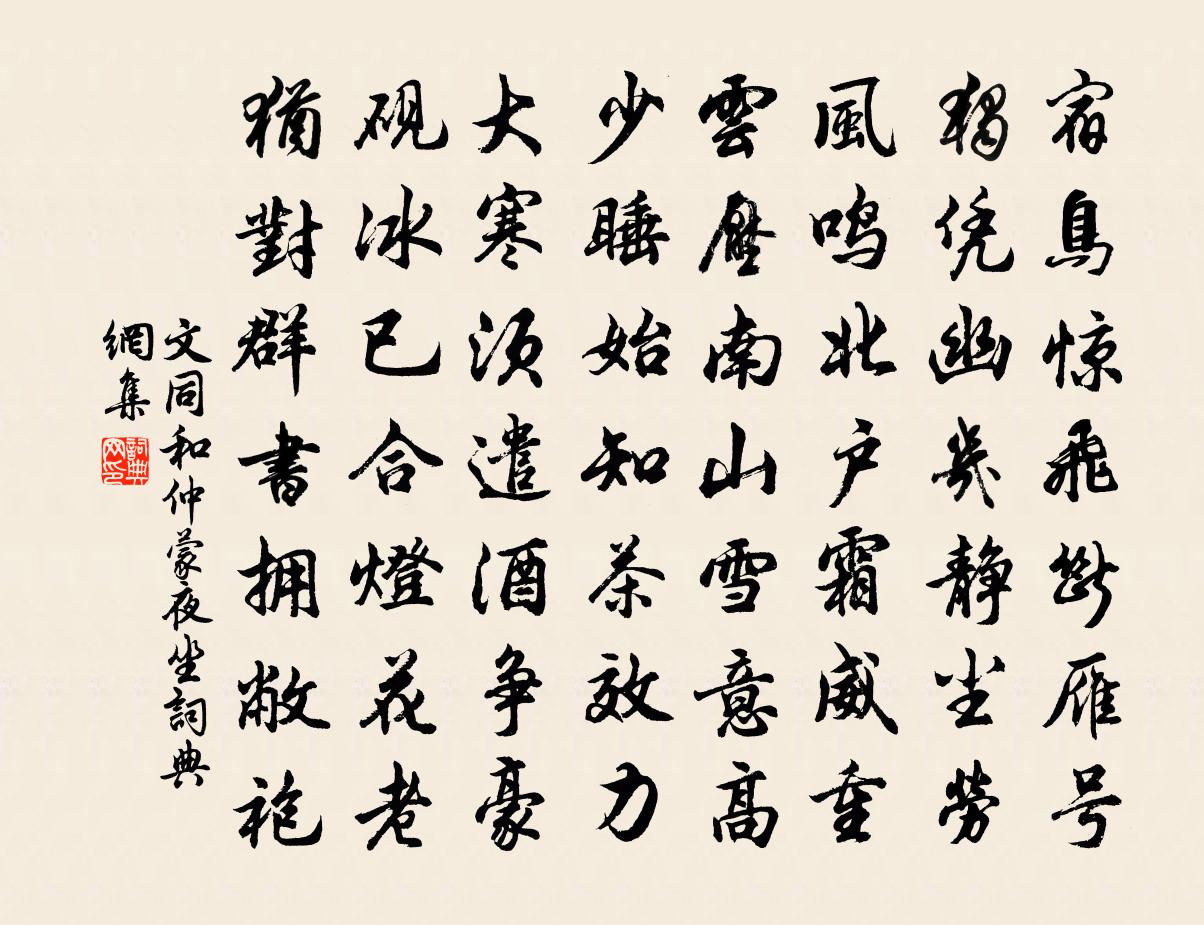 宿鳥惊飛断雁号
獨凭幽几静坐勞
風鸣北户霜威重
雲壓南山雪意高
少睡始知茶效力
大寒須遣酒争豪
砚冰已合燈花老
猶對群書拥敝袍
文同和仲蒙夜坐詞典
網集
詞典網印